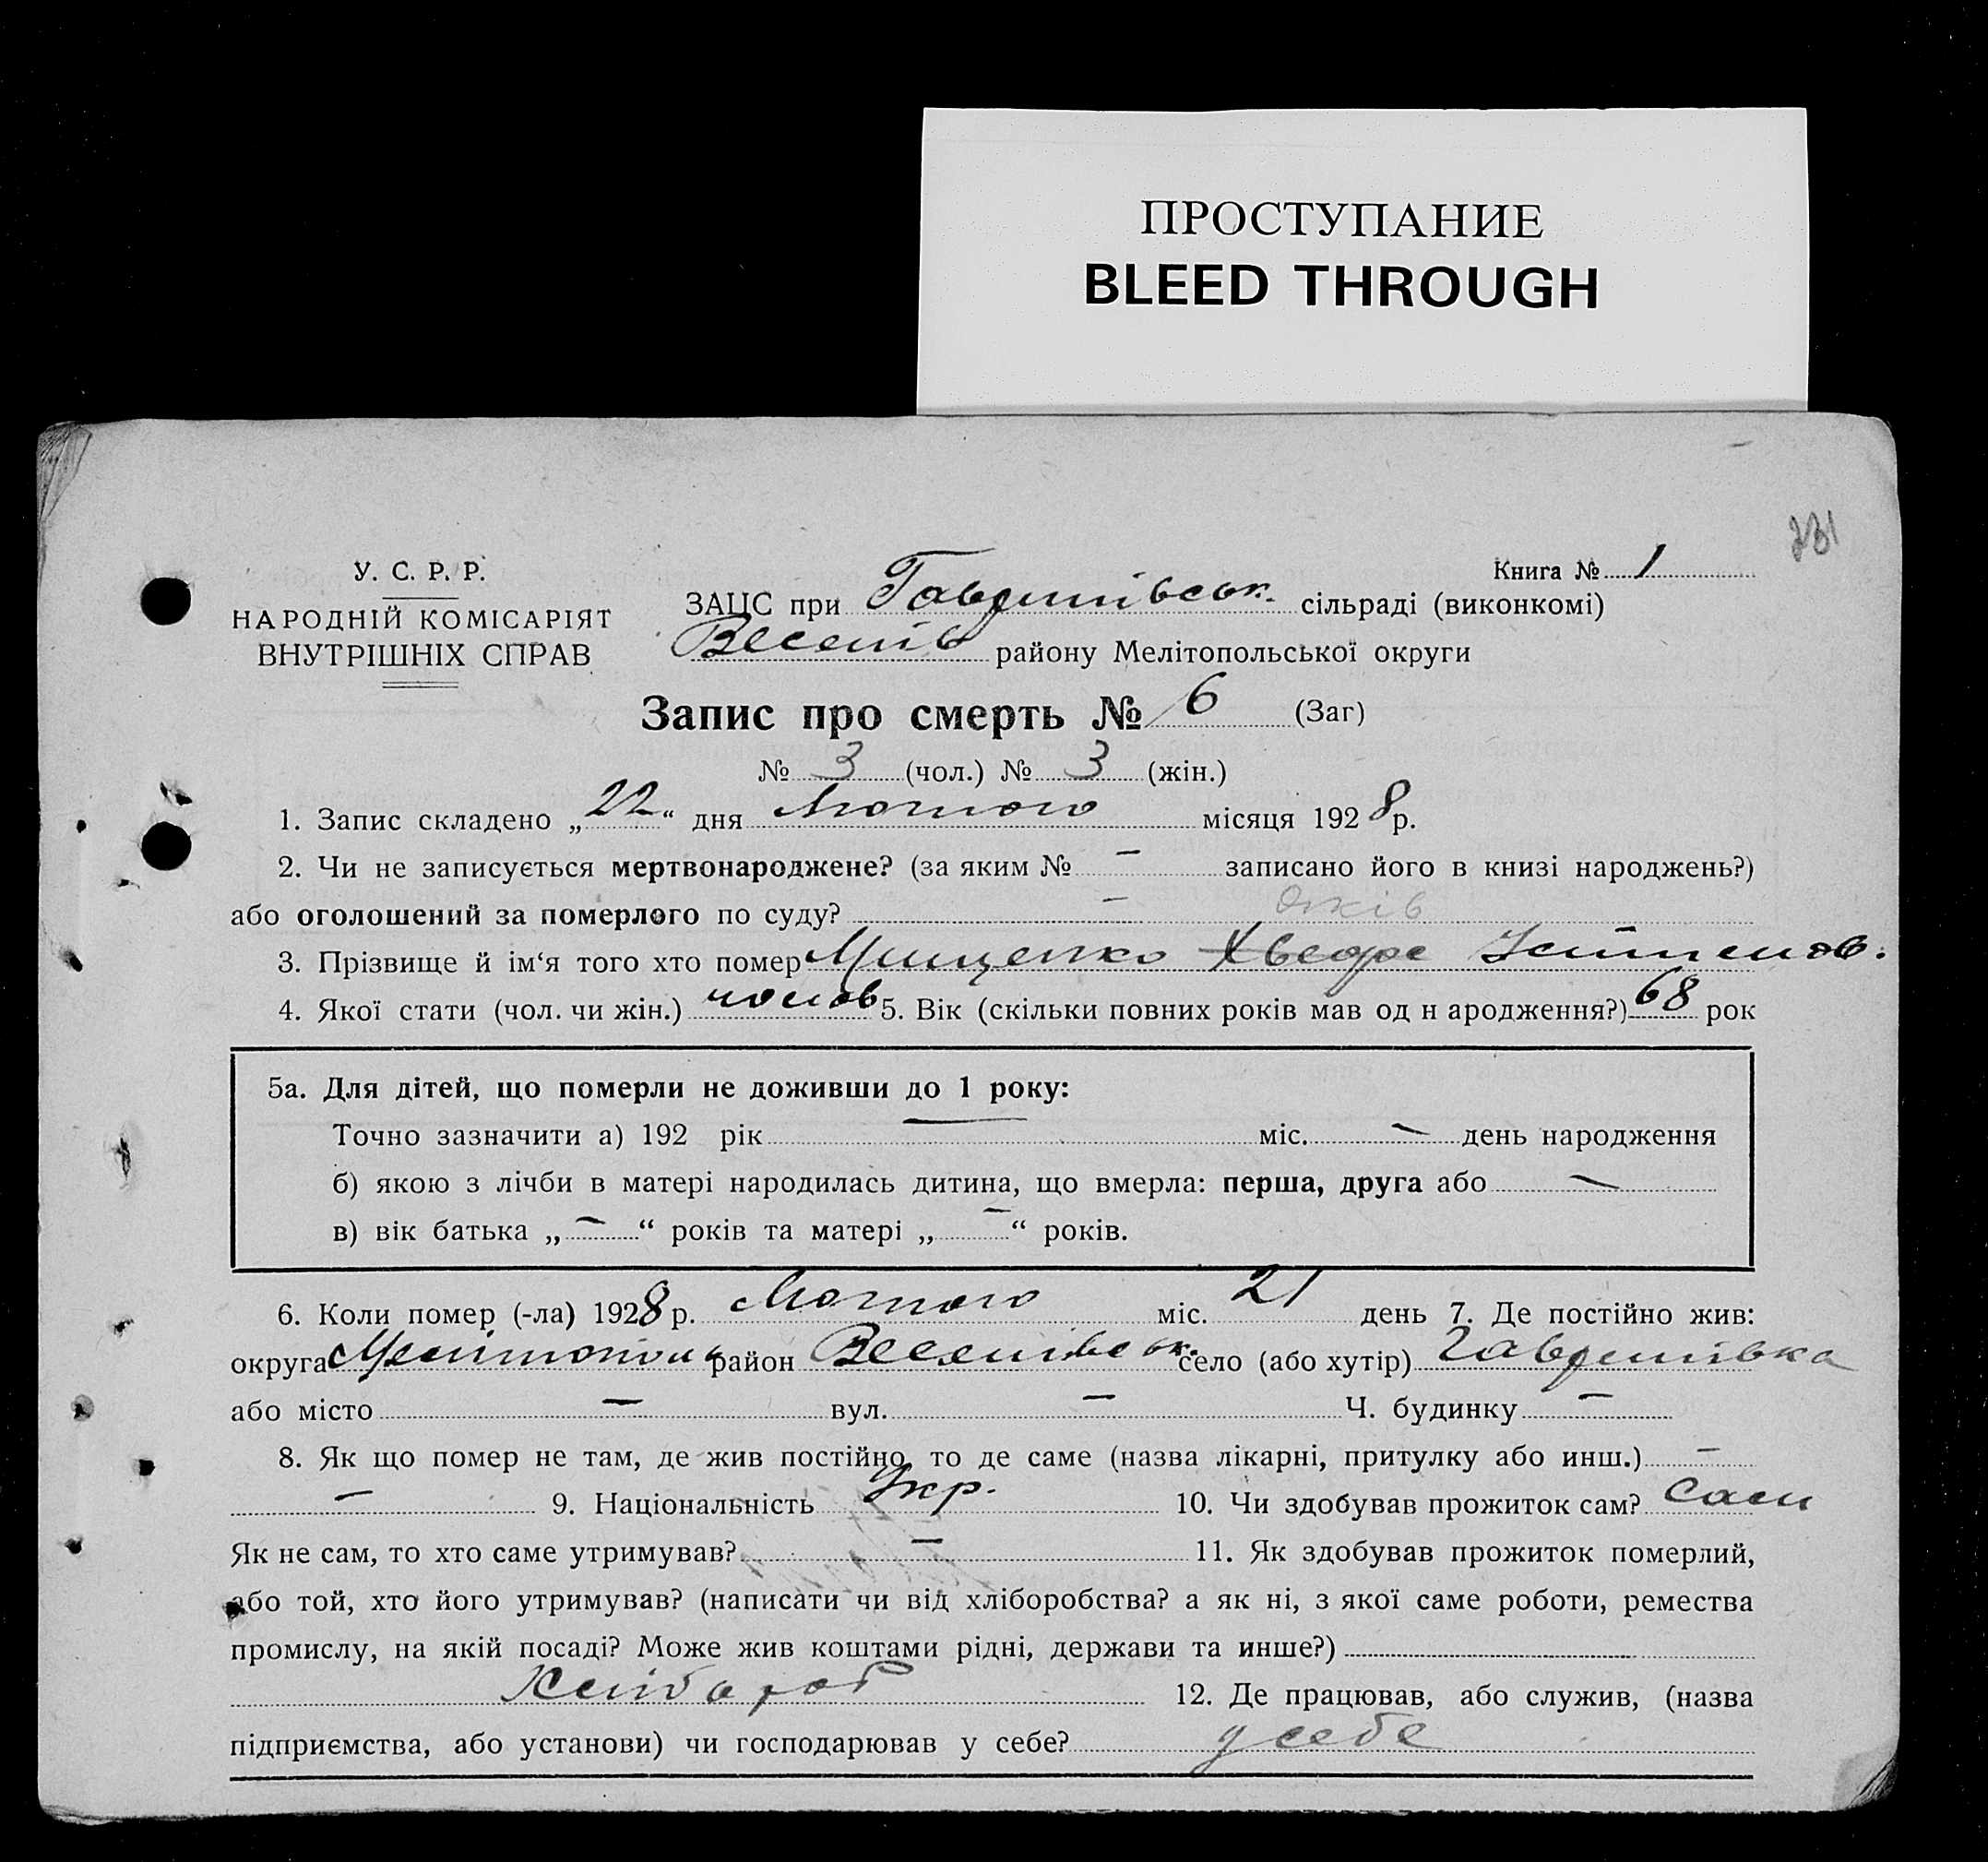 ПРОСТУПАНИЕ
BLEED THROUGH
231
У. С. Р. Р.
НАРОДНІЙ КОМІСАРІЯТ
ВНУТРІШНІХ СПРАВ
Книга № 1
ЗАЦС при Гаврилівськ. сільраді (виконкомі)
Веселів району Мелітопольської округи
Запис про смерть № 6 (Заг)
№ 3 (чол.) № 3 (жін.)
1. Запис складено „22“ дня Лютого місяця 1928 р.
2. Чи не записується мертвонароджене? (за яким № — записано його в книзі народжень?)
або оголошений за померлого по суду? —
3. Прізвище й ім‘я того хто помер Мищенко Хведре
4. Якої стати (чол. чи жін.) чолов 5. Вік (скільки повних років мав од н ародження?) 68 рок
5а. Для дітей, що померли не доживши до 1 року:
Точно зазначити а) 192 рік — міс. — день народження
б) якою з лічби в матері народилась дитина, що вмерла: перша, друга або —
в) вік батька „—“ років та матері „—“ років.
6. Коли помер (-ла) 1928 р. Лютого міс. 21 день 7. Де постійно жив:
округа Мелітополь район Веселівськ. село (або хутір) Гаврилівка
або місто — вул. — Ч. будинку —
8. Як що помер не там, де жив постійно, то де саме (назва лікарні, притулку або инш.) —
— 9. Національність Укр. 10. Чи здобував прожиток сам? Сам
Як не сам, то хто саме утримував? — 11. Як здобував прожиток померлий,
або той, хто його утримував? (написати чи від хліборобства? а як ні, з якої саме роботи, ремества
промислу, на якій посаді? Може жив коштами рідні, держави та инше?)
Хлібороб 12. Де працював, або служив, (назва
підприємства, або установи) чи господарював у себе? у себе